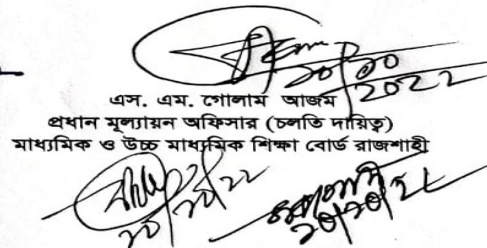 ১০/১০
2022
এস. এম. গোলাম আজম
প্রধান মূল্যায়ন অফিসার (চলতি দায়িত্ব)
মাধ্যমিক ও উচ্চ মাধ্যমিক শিক্ষা বোর্ড রাজশাহী